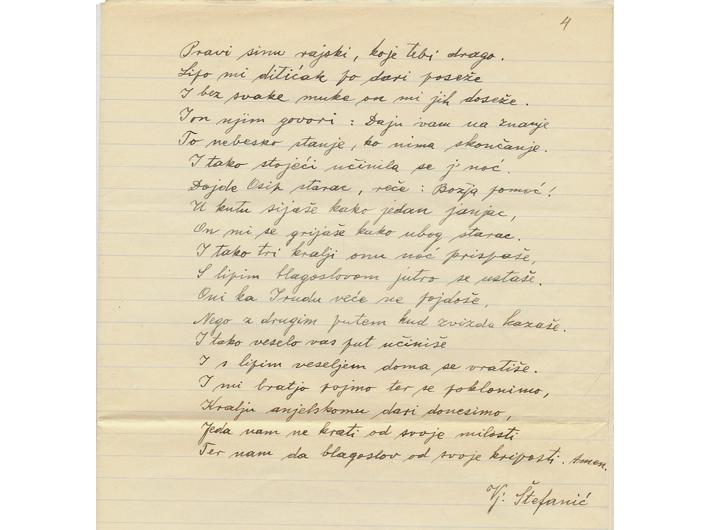 4
Pravi sinu rajski, koje tebi drago.
Lipo mi ditićak po dari poseže
I bez svake muke on mi jih doseže.
I on njim govori: Daju vam na znanje
To nebesko stanje, ko nima skončanje.
I tako stojeći učinila se j' noć.
Dojde Osip starac, reče: Božja pomoć!
U kutu sijaše kako jedan janjac,
On mi se grijaše kako ubog starac.
I tako tri kralji onu noć prispaše,
S lipim blagoslovom jutro se ustaše.
Oni ka Irudu veće ne pojdoše,
Nego z drugim putem kud zvizda kazaše.
I tako veselo vas put učiniše
I s lipim veseljem doma se vratiše.
I mi bratjo pojmo ter se poklonimo,
Kralju anjelskomu dari donesimo,
Jeda nam ne krati od svoje milosti
Ter nam da blagoslov od svoje kriposti. Amen.
Vj. Štefanić